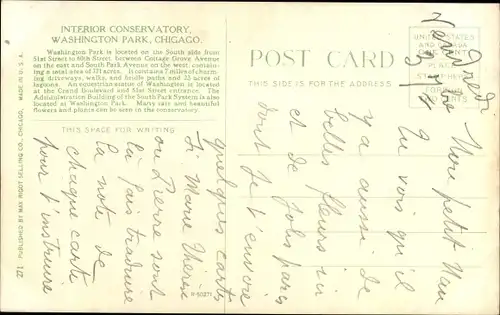 INTERIOR CONSERVATORY,
WASHINGTON PARK, CHICAGO.
Washington Park is located on the South side from
51st Street to 60th Street, between Cottage Grove Avenue
on the east and South Park Avenue on the west, contain-
ing a total area of 371 acres. It contains 7 miles of charm-
ing driveways, walks, and bridle paths and 25 acres of
lagoons. An equestrian statue of Washington is located
at the Grand Boulevard and 51st Street entrance. The
Administration Building of the South Park System is also
located at Washington Park. Many rare and beautiful
flowers and plants can be seen in the conservatory.
THIS SPACE FOR WRITING
POST CARD
THIS SIDE IS FOR THE ADDRESS
UNITED STATES
PLACE
PUBLISHED BY MAX RIGOT SELLING CO., CHICAGO, MADE IN U.S.A.
127
R-50271
Vendredi
Mon petit
Tu vois qu'il
y a aussi de
belles fleurs ici
et de jolis parcs
dont je t'envoie
quelques cartes
Si Marie Thérèse
ou Pierre sont
là fais traduire
la note de
chaque carte
pour t'instruire